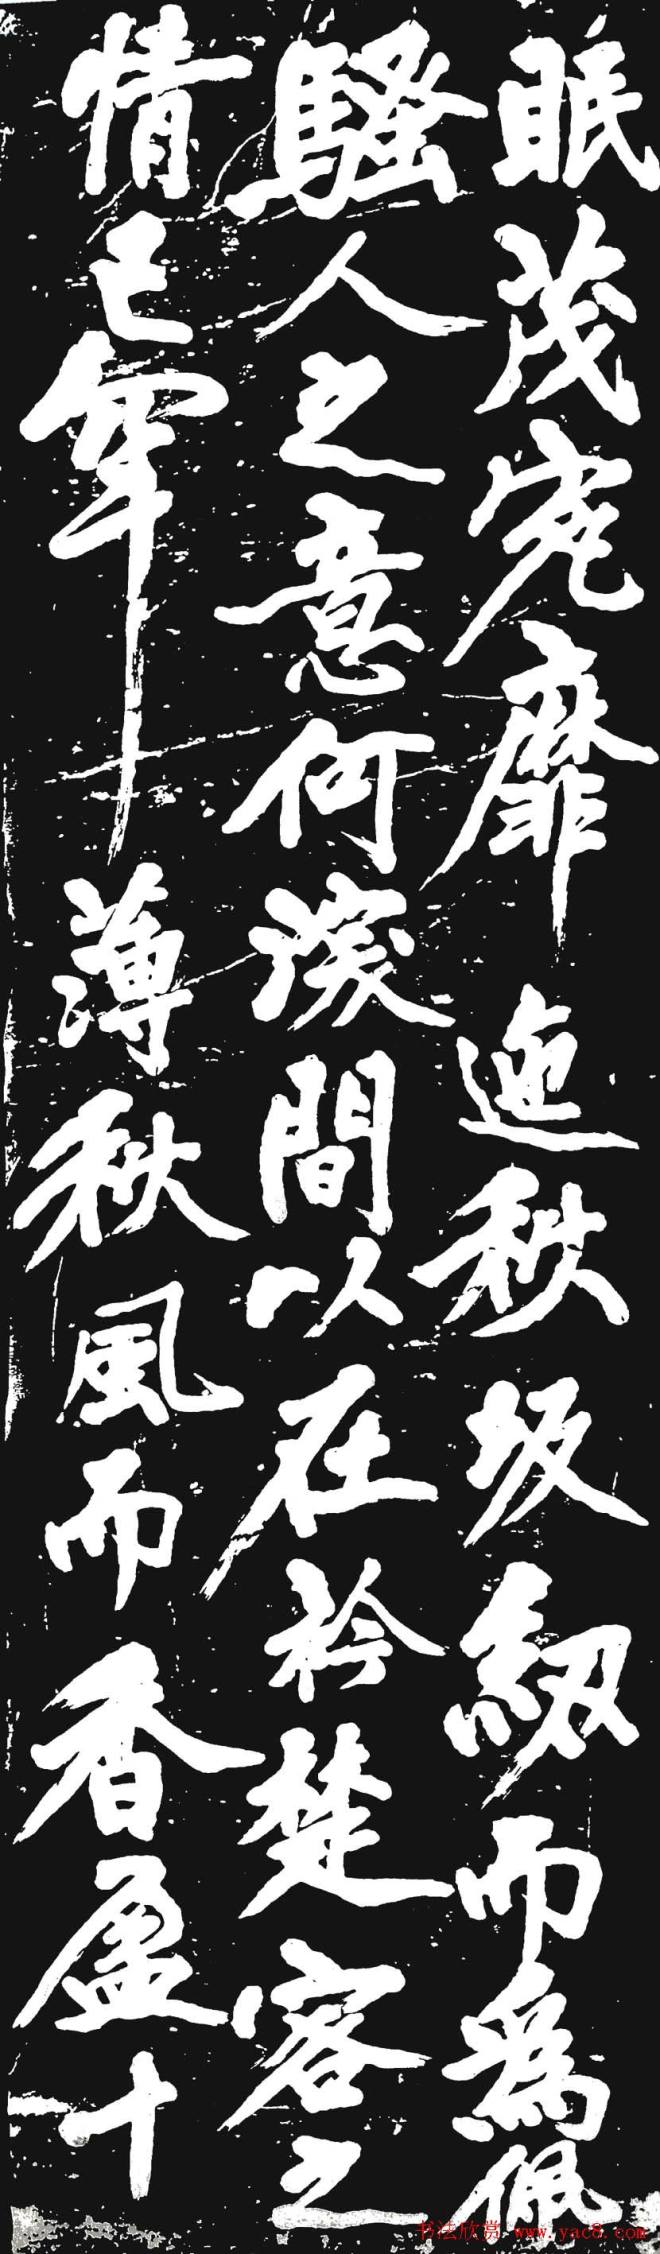 眠茂宛靡迤秋坂紉而為佩
騷人之意何深間以在衿楚客之
情已罕薄秋風而香盈十
书法欣赏 www.yac8.com